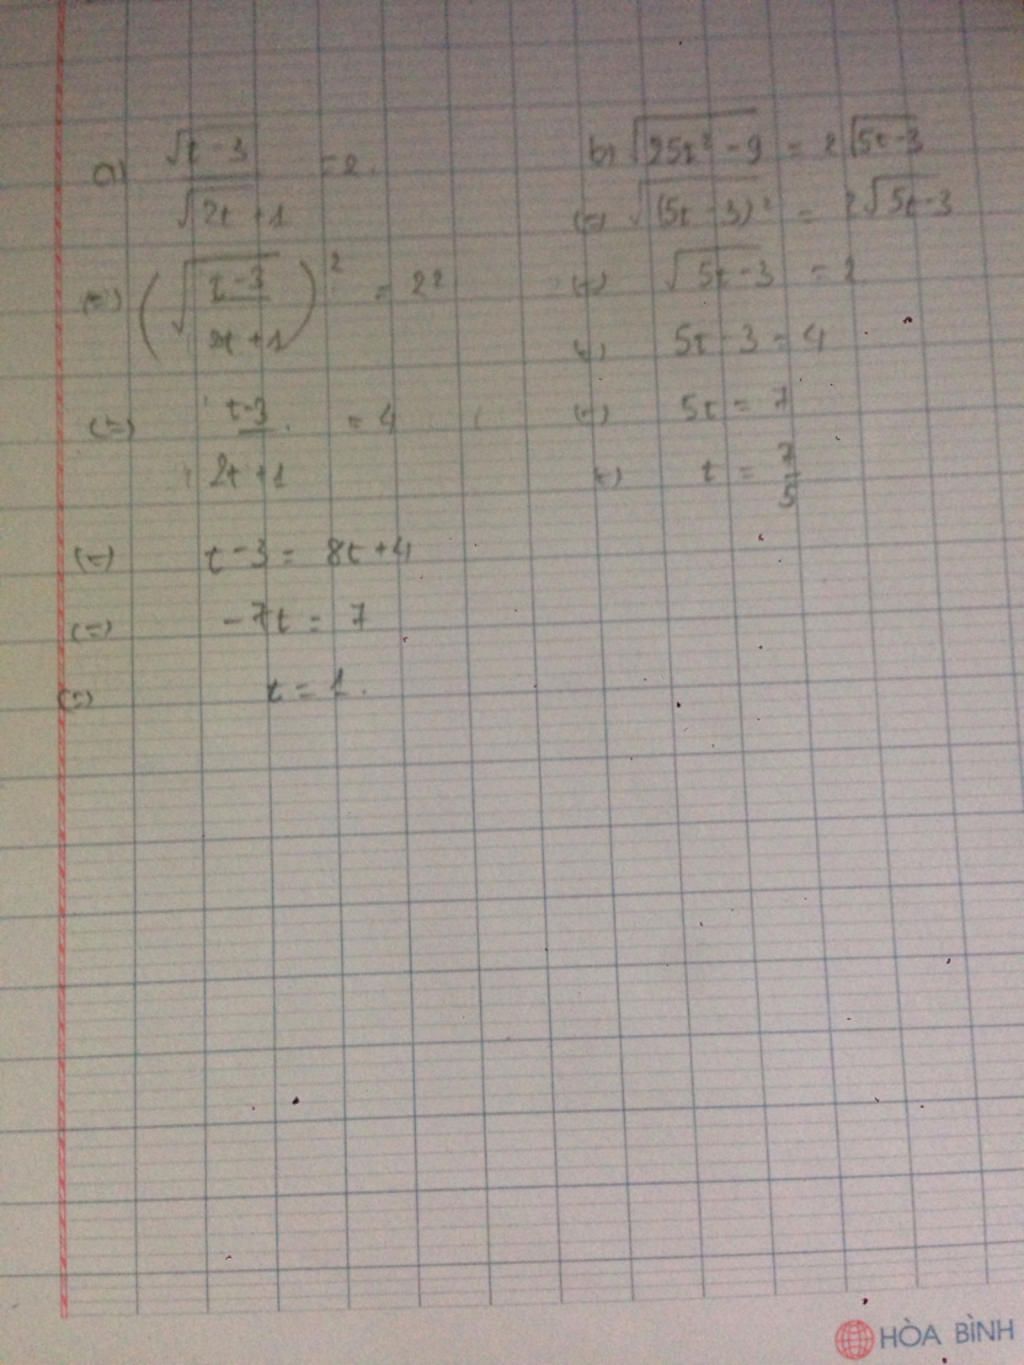 a) √(t-3) / √(2t+1) = 2.
(=) (√((t-3)/(2t+1)))² = 2²
(=) (t-3)/(2t+1) = 4
(=) t-3 = 8t+4
(=) -7t = 7
(=) t = 1.
b) √(25t²-9) = 2√(5t-3)
(=) √((5t-3)²) = 2√(5t-3)
(=) √(5t-3) = 2
(=) 5t-3 = 4
(=) 5t = 7
(=) t = 7/5
HÒA BÌNH